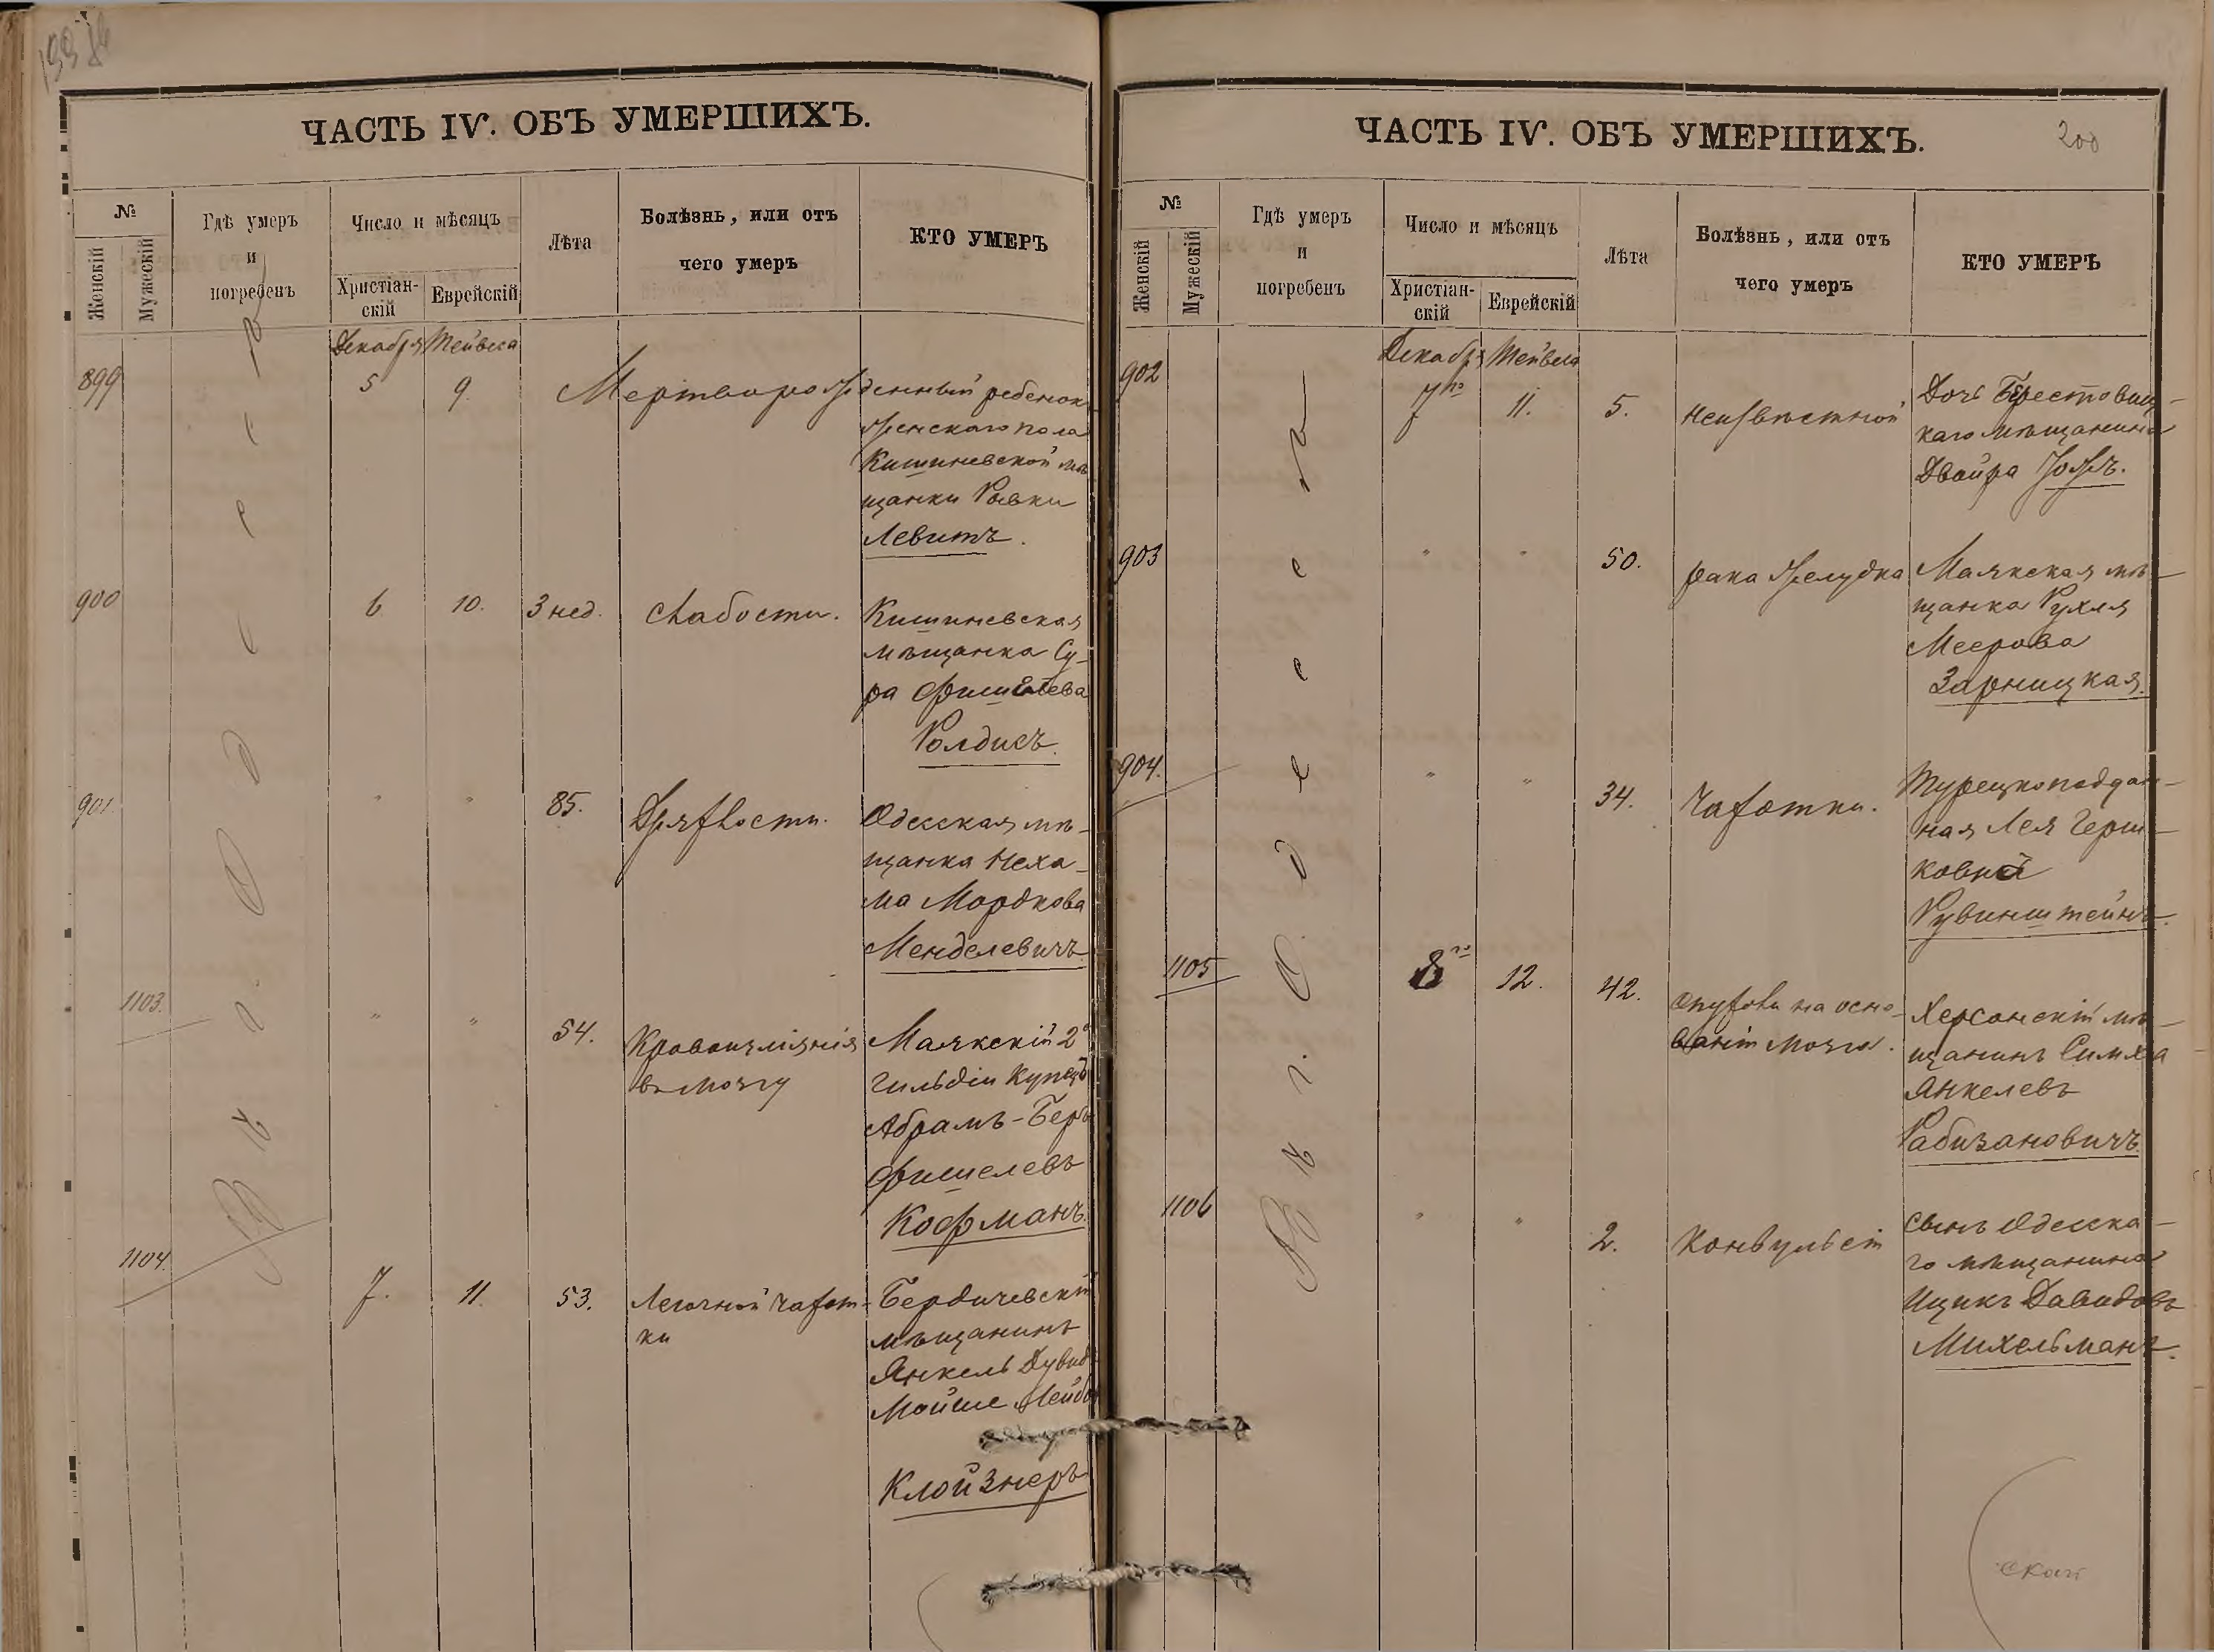 ЧАСТЬ IV. ОБЪ УМЕРШИХЪ.
№
Женскій
Мужескій
Гдѣ умеръ
и
погребенъ
Число и мѣсяцъ
Христіан-
скій
Еврейскій
Лѣта
Болѣзнь, или отъ
чего умеръ
КТО УМЕРЪ
Въ г. Одессѣ
Декабря Тейвеса
899 5 9. Мертворожденный ребенок
женскаго пола
Кишиневской мѣ
щанки Ривки
Левитъ.
900 6 10. 3 нед. Слабости. Кишиневская
мѣщанка Су-
ра Фишелева
Ролдисъ.
901 " " 85. Дряхлости. Одесская мѣ-
щанка Неха-
ма Мордкова
Менделевичъ.
1103. " " 54. Кровоизліянія
въ мозгу
Маякскій 2й
гильдіи купецъ
Абрамъ-Беръ
Фишелевъ
Кофманъ.
1104. 7. 11. 53. Легочной чахот-
ки
Бердичевскій
мѣщанинъ
Янкель Дувид
Мойше Лейбов
Клойзнеръ
ЧАСТЬ IV. ОБЪ УМЕРШИХЪ.
200
№
Женскій
Мужескій
Гдѣ умеръ
и
погребенъ
Число и мѣсяцъ
Христіан-
скій
Еврейскій
Лѣта
Болѣзнь, или отъ
чего умеръ
КТО УМЕРЪ
Въ г. Одессѣ
Декабря Тейвеса
902 7го 11. 5. Неизвѣстной Дочь Берестовиц-
каго мѣщанина
Двойра
903 " " 50. рака желудка Маякская мѣ-
щанка Рухля
Меерова
Зарницкая.
904. " " 34. Чахотки. Турецкоподдан-
ная Лея Герш-
ковна
Рувинштейнъ.
1105 8го 12. 42. Опухоли на осно-
ваніи мозга.
Херсонскій мѣ-
щанинъ Симха
Янкелевъ
Рабизановичъ.
1106 " " 2. Конвульсій Сынъ Одесска-
го мѣщанина
Ицикъ Давидовъ
Михельманъ.